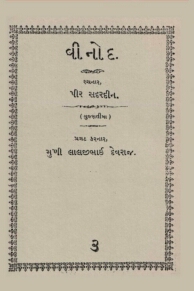 વીનોદ.
રચનાર,
પીર સદરદીન.
(ગુજરાતીમાં)
પ્રગટ કરનાર,
મુખી લાલજીભાઈ દેવરાજ.
૩